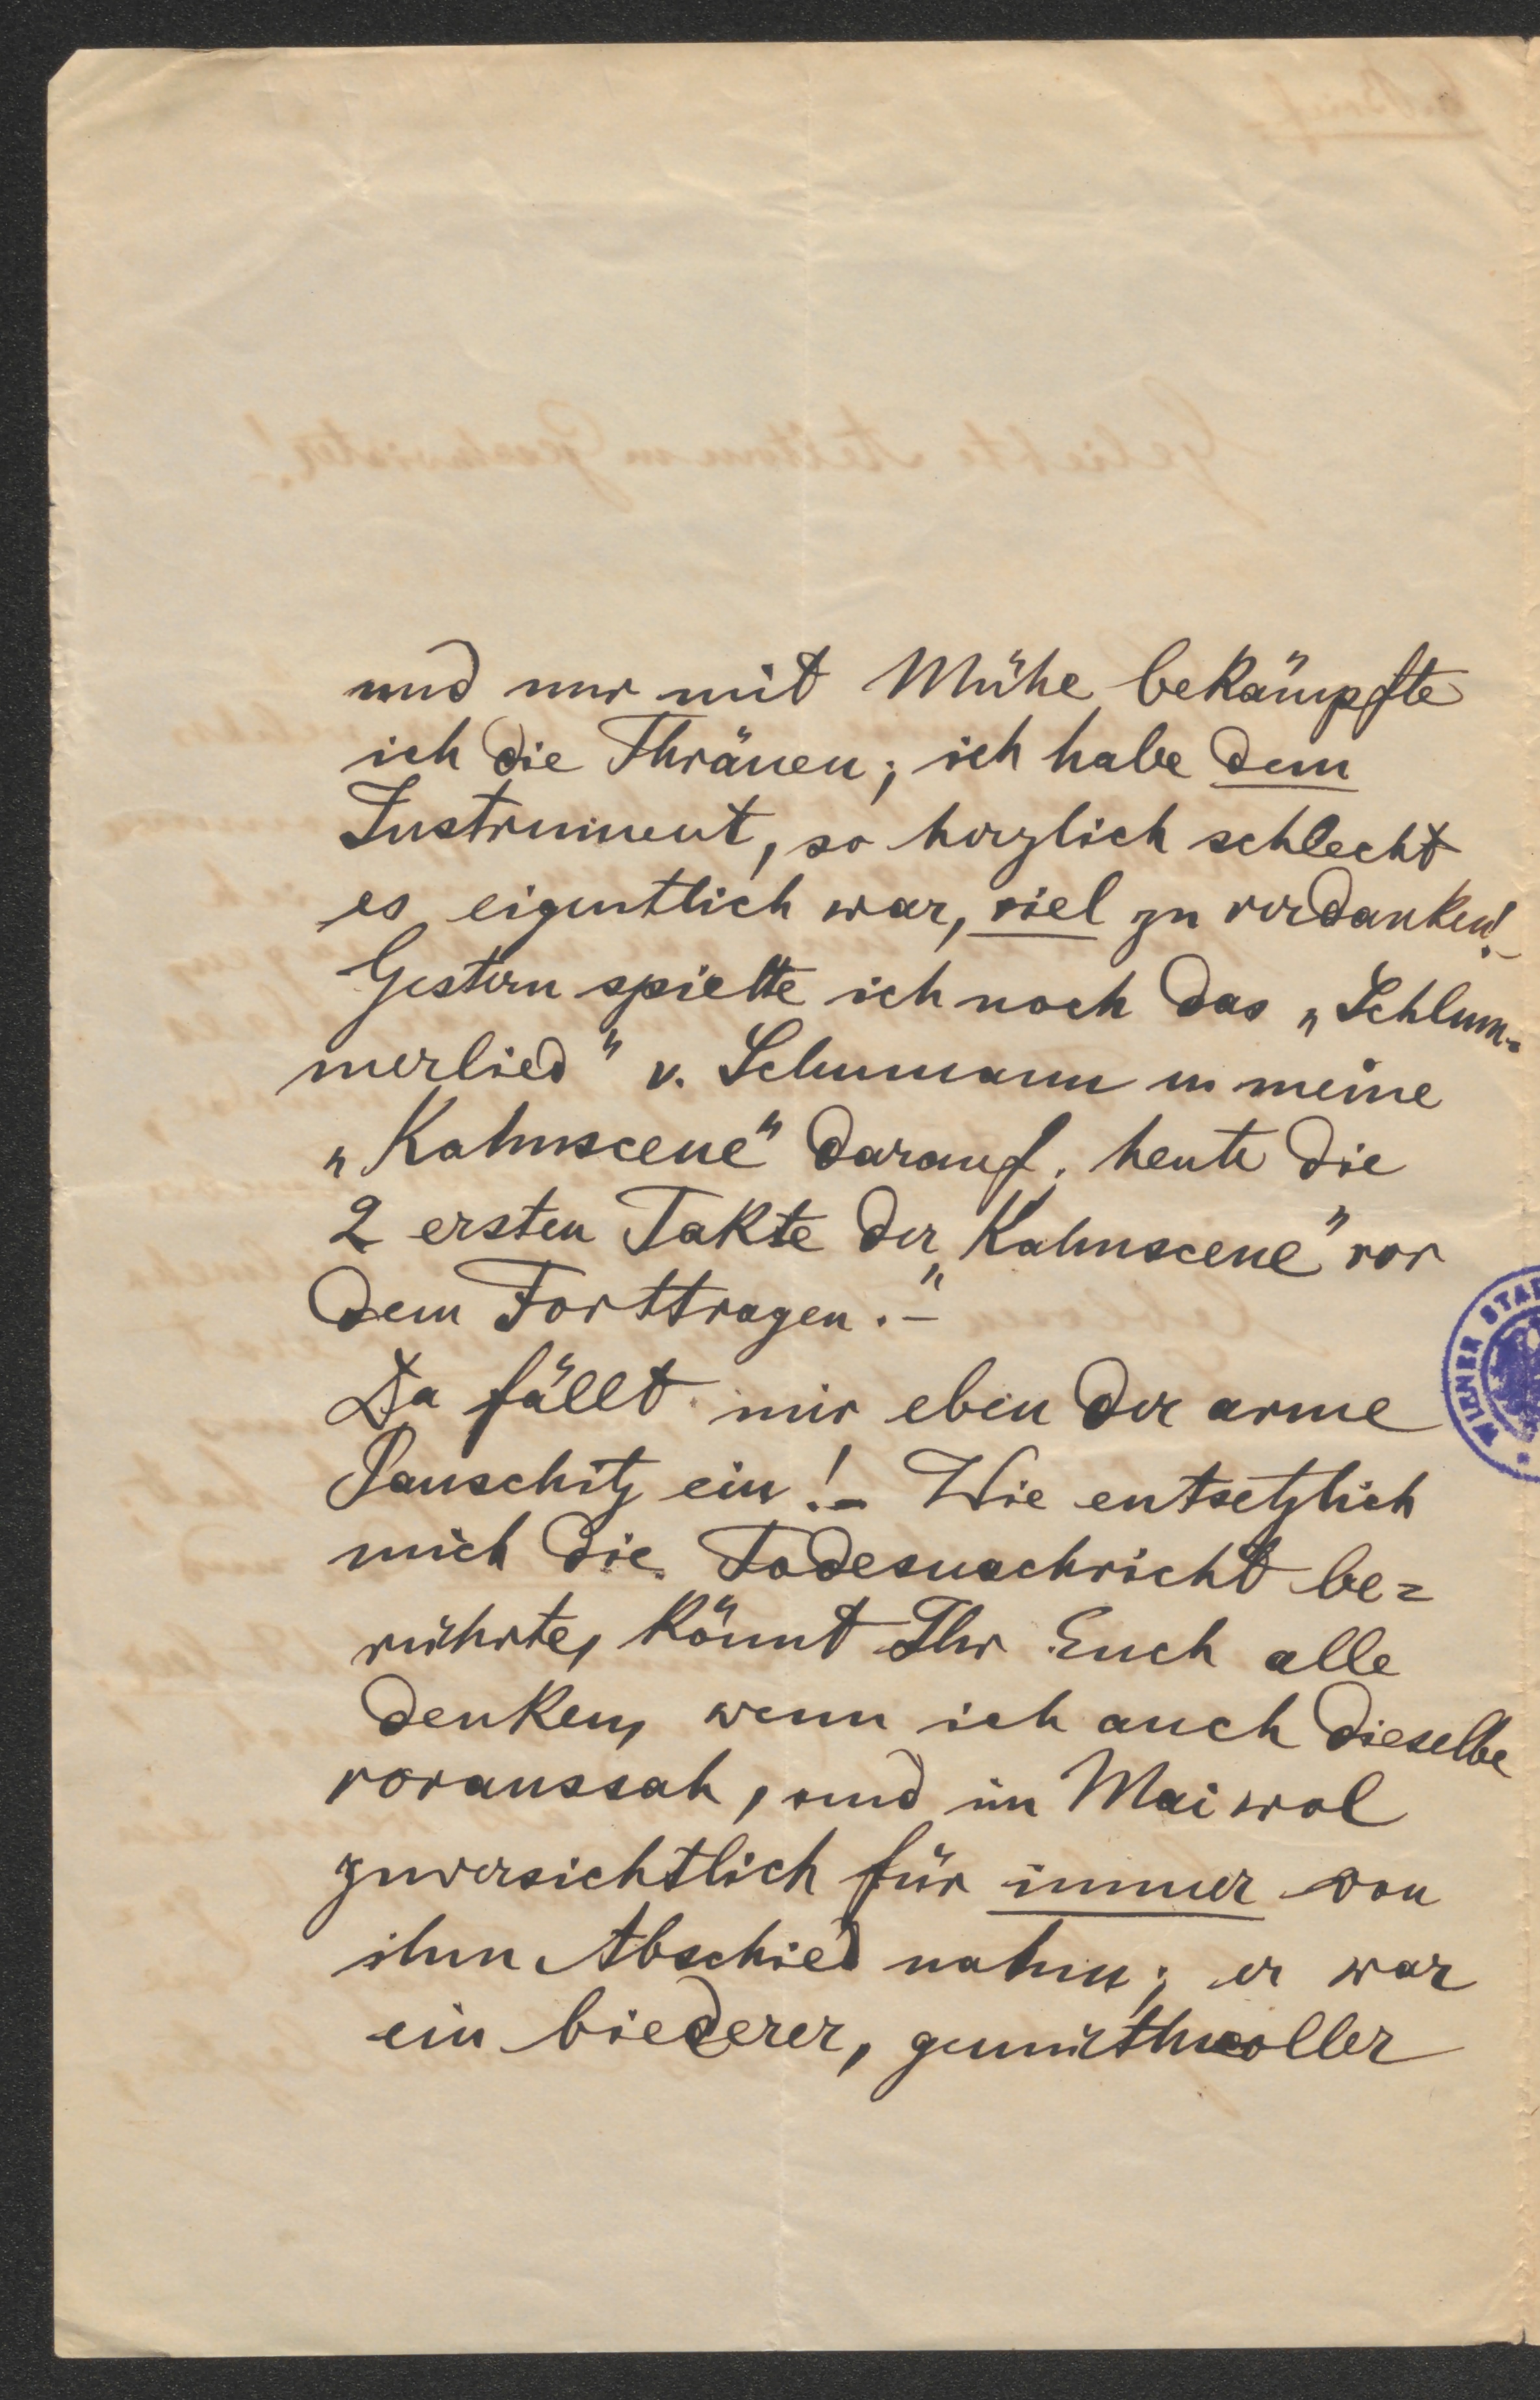 und nur mit Mühe bekämpfte
ich die Thränen; ich habe dem
Instrument, so herzlich schlecht
es eigentlich war, viel zu verdanken!–
Gestern spielte ich noch das „Schlum=
merlied" v. Schumann u. meine
„Kahnscene" darauf, heute die
2 ersten Takte der „Kahnscene" vor
dem Forttragen. –
Da fällt mir eben der arme
Pauschitz ein! – Wie entsetzlich
mich die Todesnachricht be=
rührte, könnt Ihr Euch alle
denken, wenn ich auch dieselbe
voraussah, und im Mai wol
zuversichtlich für immer von
ihm Abschied nahm; er war
ein biederer, gemüthvoller
WIENER STA